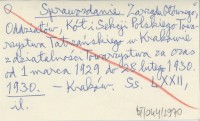 Q Sprawozdanie Zarządu Głównego,
Oddziałów, Kół i Sekcji Polskiego Towa-
rzystwa Tatrzańskiego w Krakowie
z działalności Towarzystwa za czas
od 1 marca 1929 do 28 lutego 1930.
1930. — Kraków. Ss. LXXII,
il.